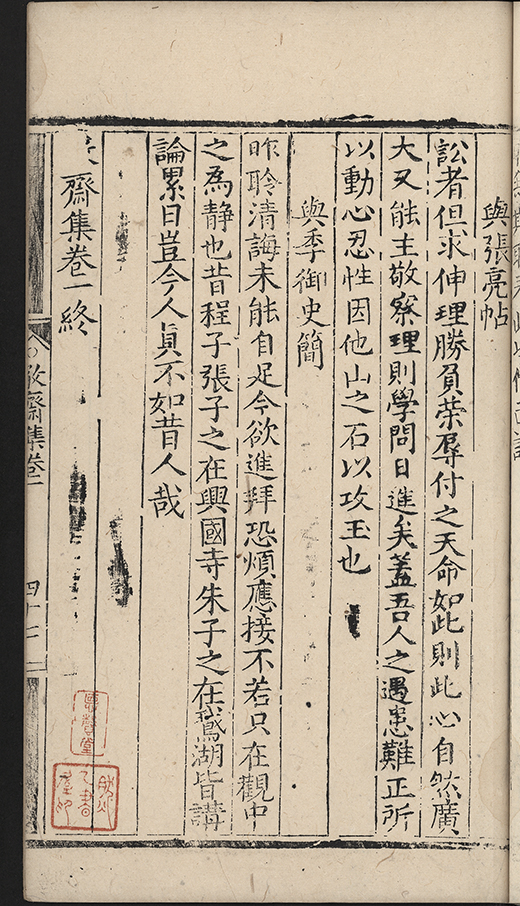 與張亮帖
訟者但求伸理勝負榮辱付之天命如此則此心自然廣
大又能主敬察理則學問日進矣蓋吾人之遇患難正所
以動心忍性因他山之石以攻玉也
與季御史簡
昨聆清誨未能自足今欲進拜恐煩應接不若只在觀中
之為静也昔程子張子之在興國寺朱子之在鵝湖皆講
論累日豈今人真不如昔人哉
齋集卷一終
敬齋集卷一
四十七